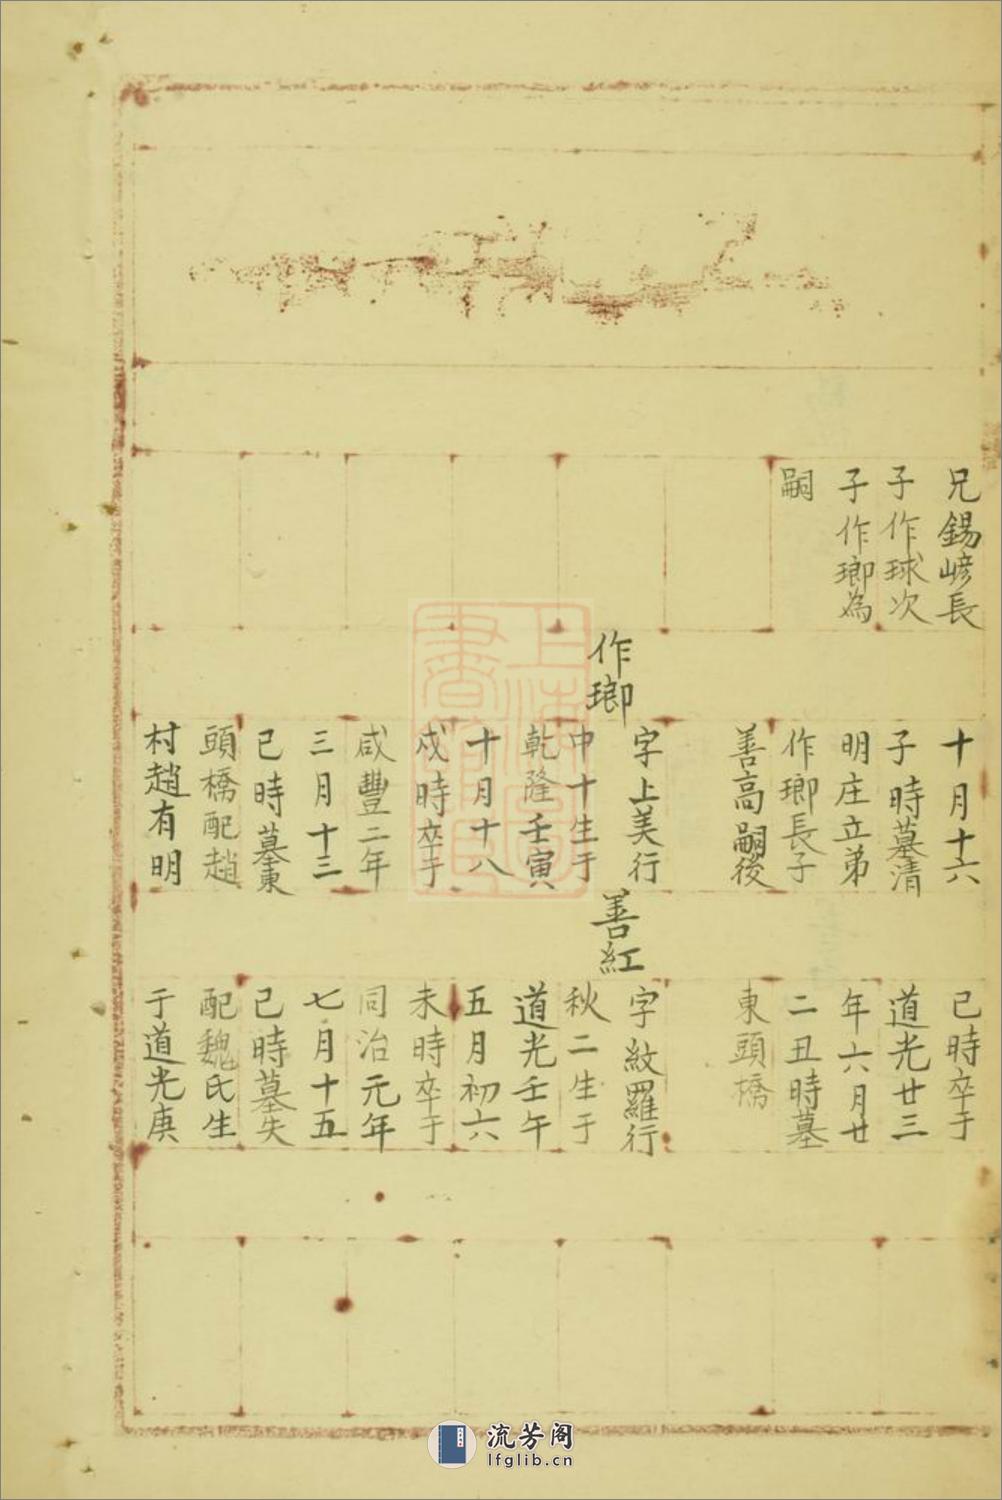 兄錫嵃長
子作球次
子作瑯為
嗣
十月十六
子時墓清
明庄立弟
作瑯長子
善高嗣後
作瑯
字上美行
中十生于
乾隆壬寅
十月十八
戍時卒于
咸豐二年
三月十三
巳時墓東
頭橋配趙
村趙有明
巳時卒于
道光廿三
年六月廿
二丑時墓
東頭橋
善紅
字紋羅行
秋二生于
道光壬午
五月初六
未時卒于
同治元年
七月十五
巳時墓失
配魏氏生
于道光庚
上海圖書館藏
流芳阁
lfglib.cn